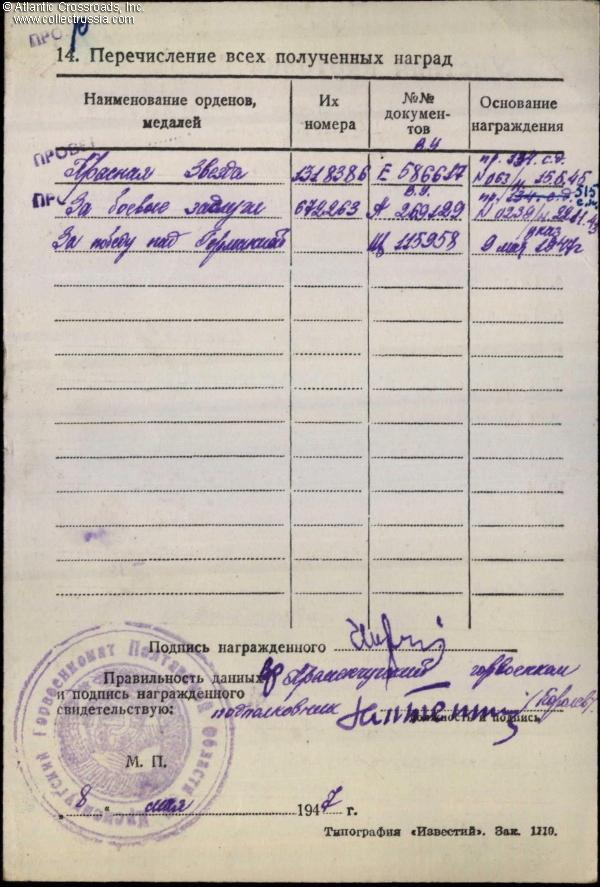 © Atlantic Crossroads, Inc.
www.collectrussia.com
14. Перечисление всех полученных наград
Наименование орденов, медалей
Их номера
№№ документов
Основание награждения
Красная Звезда 1318386 Е 586617 пр. 134. с.д. N 063/н 15.6.45
За боевые заслуги 672263 А 269129 пр. 134. с.д. 515 N 0239/н
За победу над Германией Щ 115958 указ 9 мая 1945 г
Подпись награжденного
Правильность данных Кременчугский горвоенком
и подпись награжденного
свидетельствую: подполковник /Королев/
Должность и подпись
Кременчугский Горвоенкомат Полтавской Области
М. П.
„8" мая 1947 г.
Типография «Известий». Зак. 1110.